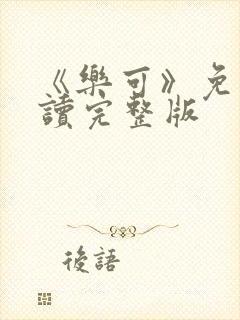 《樂可》免
讀完整版
後語